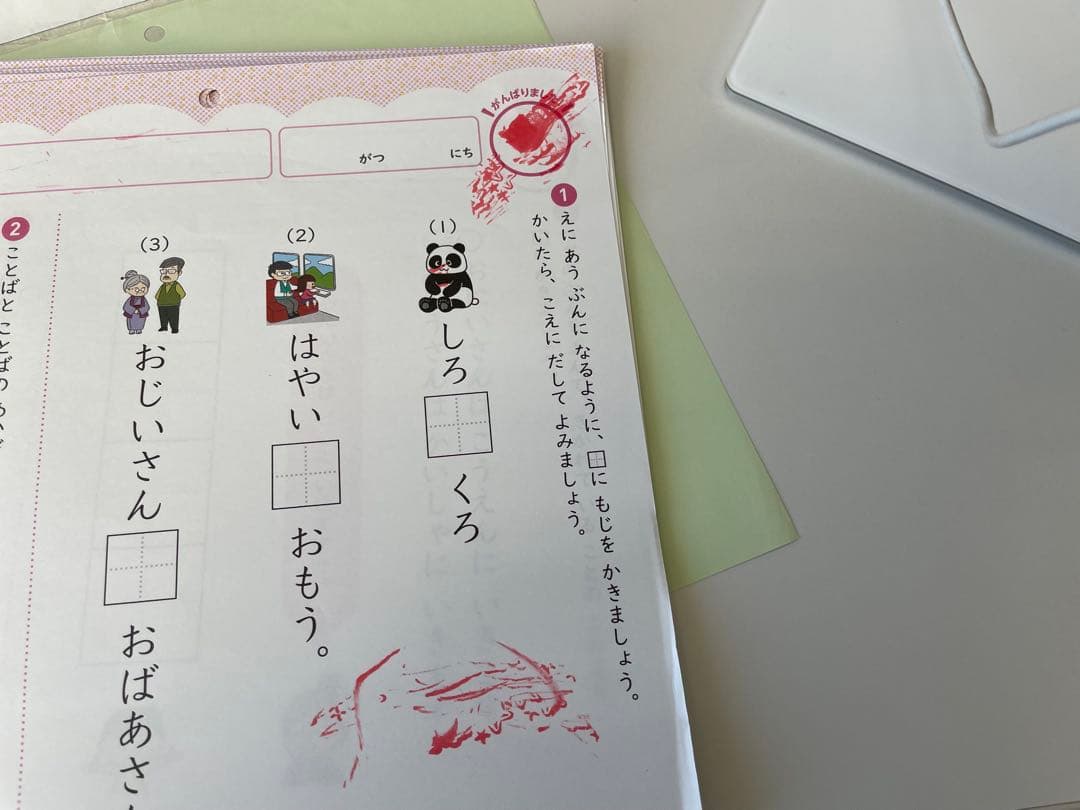 がんばりまし
がつ にち
1
えに あう ぶんに なるように、 に もじを かきましょう。
かいたら、こえに だして よみましょう。
(1)
しろ くろ
(2)
はやい おもう。
(3)
おじいさん おばあさ
2
ことばと ことばの